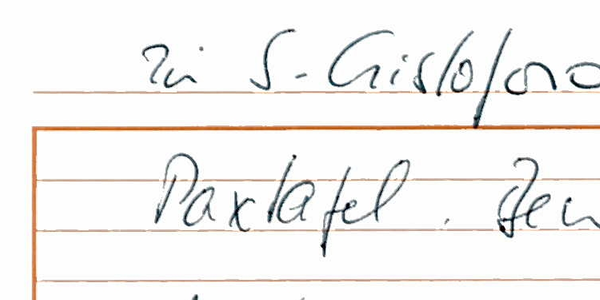 in S. Cristoforo
Paxtafel. Den